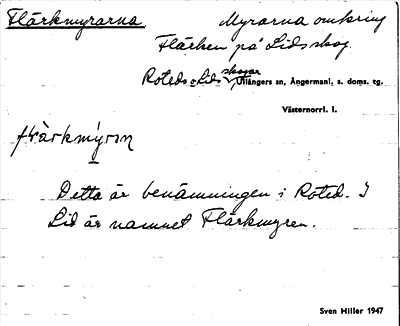 Flärkmyrarna Myrarna omkring
Flärken på Lidsskog.
Roteds o Lids skogar Ullångers sn, Ångermanl. s. doms. tg.
Västernorrl. l.
Detta är benämningen i Roted. I
Lid är namnet Flärkmyren.
Sven Hiller 1947